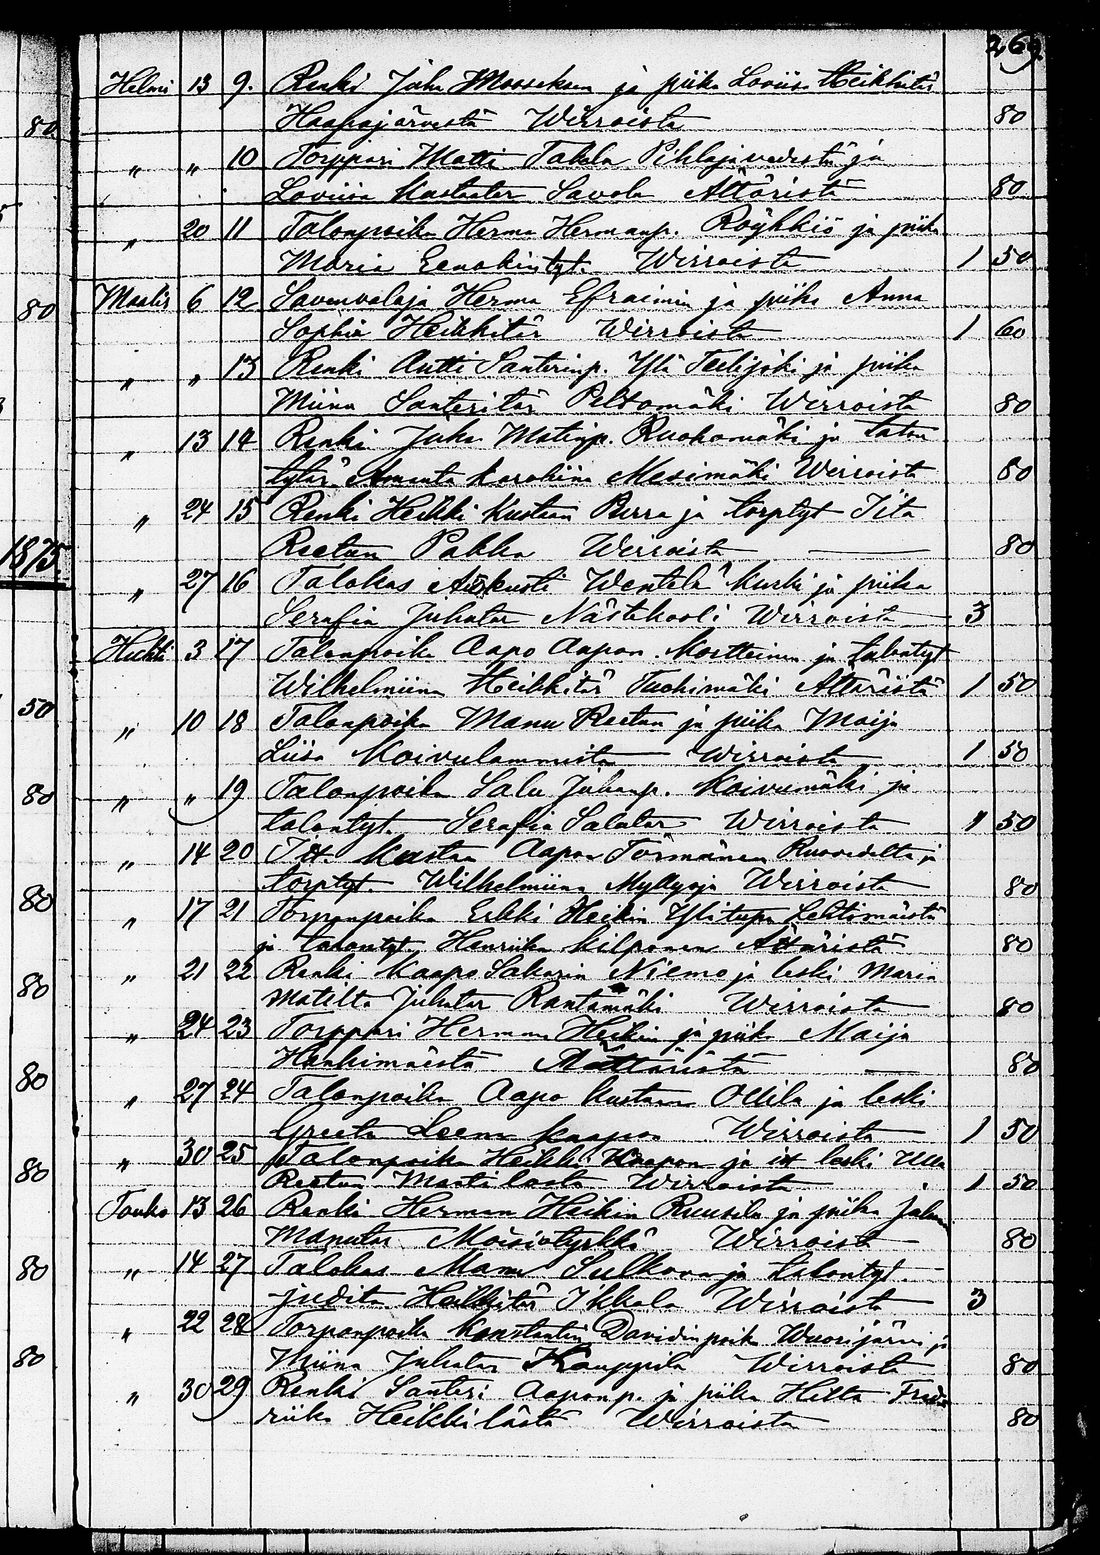 269.
80
Helmi 13 9. Renki Juha Mooseksen ja piika Loviisa Heikkitär
Haapajärvestä Wirroista 80
„ „ 10 Torppari Matti Takala Pihlajavedestä ja
Loviisa Kustaatar Savola Ättäristä 80
„ 20 11 Talonpoika Herma Hermanp. Röykkiö ja piika
Maria Eenokintyt. Wirroista 1 50
80
Maalis 6 12 Savenvalaja Herma Efraimin ja piika Anna
Sophia Heikkitär Wirroista 1 60
„ „ 13 Renki Antti Santerinp. Ylä ja piika
Miina Santeritär Peltomäki Wirroista 80
„ 13 14 Renki Juha Matinp. Ruokomäki ja talon
tytär Amanta Karoliina Mesimäki Wirroista 80
„ 24 15 Renki Heikki Kustaan Perra ja torptyt Iita
Reetun Pakka Wirroista 80
1875.
„ 27 16 Talokas Aukusti Wentelä Kurki ja piika
Serafia Juhatar Wirroista 3
Huhti 3 17 Talonpoika Aapo Aapon Martteinen ja talontyt
Wilhelmiina Heikkitär Tuohimäki Ättäristä 1 50
50
„ 10 18 Talonpoika Manu Reetun ja piika Maija
Liisa Koivulammista Wirroista 1 50
80
„ „ 19 Talonpoika Salu Juhanp. Koivumäki ja
talontyt. Serafia Salutar Wirroista 1 50
„ 14 20 Itt. Kustaa Aapon Törmänen Ruovedeltä ja
torptyt. Wilhelmiina Myllyoja Wirroista 80
80
„ 17 21 Torpanpoika Erkki Heikin Ylitupa Lehtimäistä
ja talontyt. Henriika Kilponen Ättäristä 80
„ 21 22 Renki Kaapo Sakarin Niemo ja leski Maria
Matilta Juhatar Rantamäki Wirroista 80
80
„ 24 23 Torppari Herman Heikin ja piika Maija
Hankimäistä Ättäristä 80
80
„ 27 24 Talonpoika Aapo Kustaan Ollila ja leski
Greeta Leena Kaapon Wirroista 1 50
80
„ 30 25 Talonpoika Heikki Kaapon ja itt leski Ulla
Reetun Mantilasta Wirroista 1 50
Touko 13 26 Renki Herman Heikin Ruusila ja piika
Manutar Moisiotyrkkö Wirroista 80
80
„ 14 27 Talokas Manu Sulkava ja talontyt.
Judita Heikkitär Ikkala Wirroista 3
„ 22 28 Torpanpoika Konstantin Davidinpoika Wuorijärvi ja
Miina Juhatar Kauppila Wirroista 80
80
„ 30 29 Renki Santeri Aaponp. ja piika Hilta Fred-
riika Heikkilästä Wirroista 80